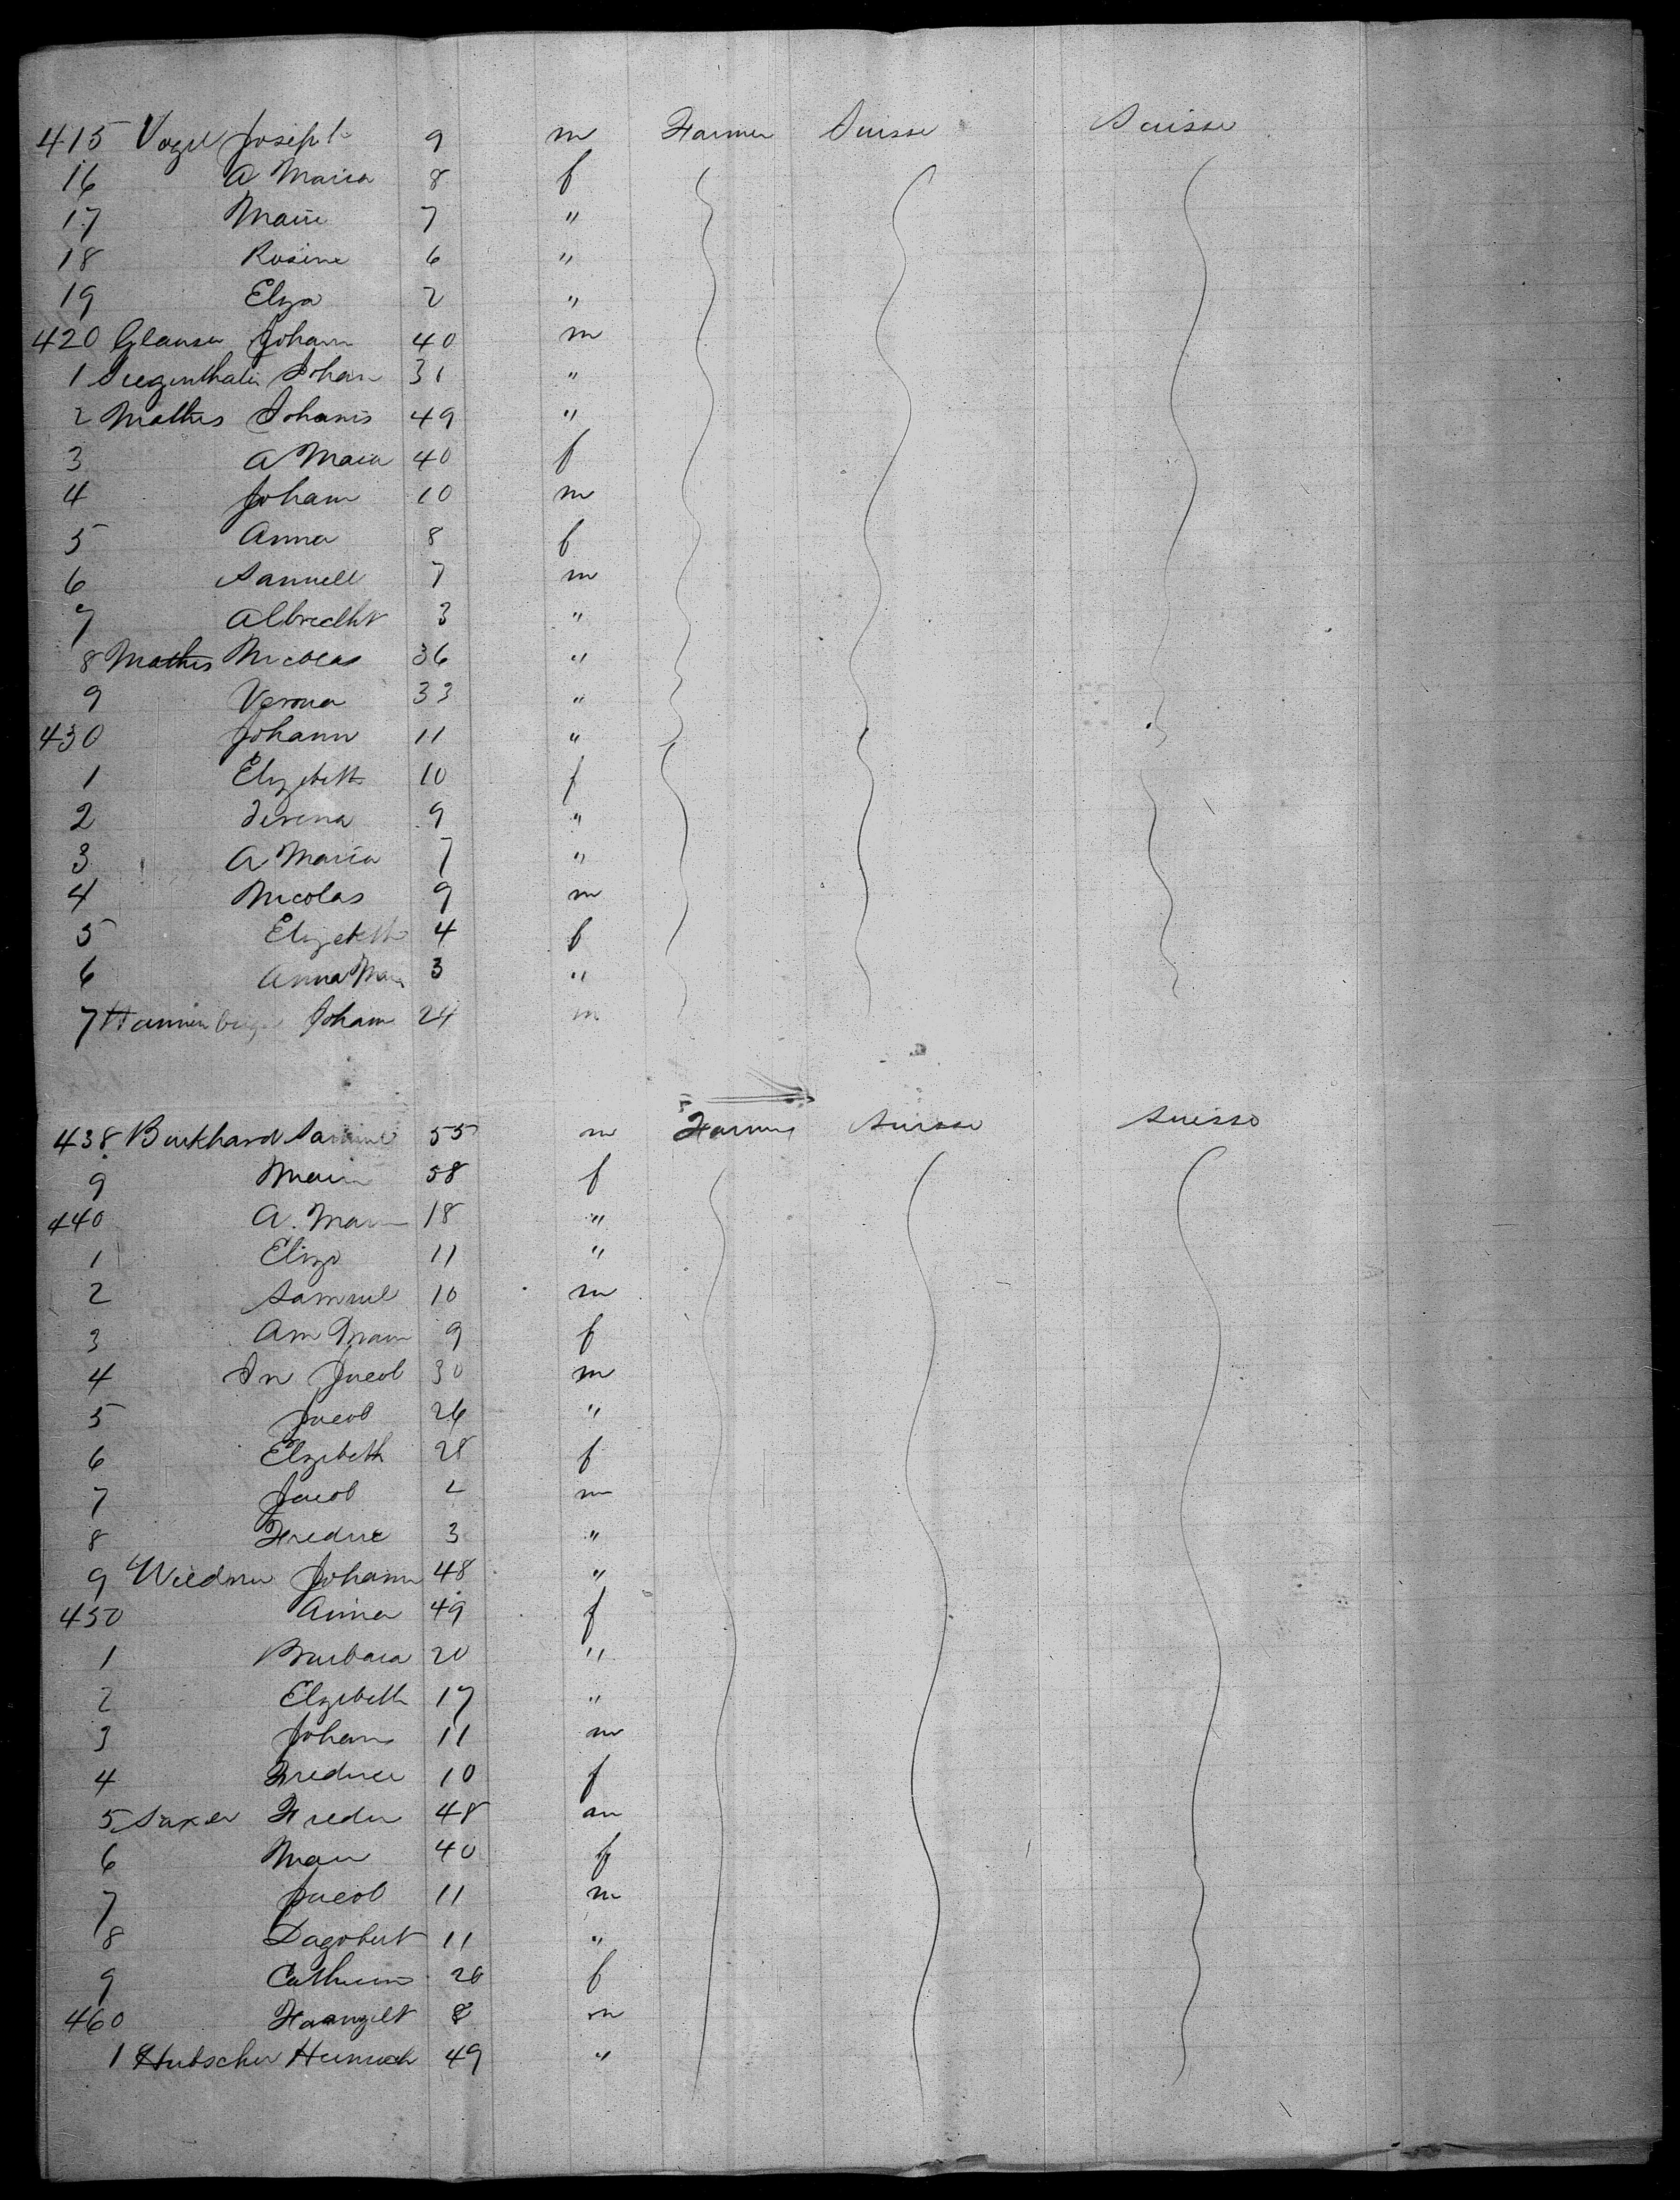 415 Vogel Joseph 9 m Farmer Suisse Suisse
16 A Maria 8 f
17 Marie 7 "
18 Rosine 6 "
19 Eliza 2 "
420 Glauser Johann 40 m
1 Siegenthaler Johan 31 "
2 Mathis Johanis 49 "
3 A Maria 40 f
4 Johann 10 m
5 Anna 8 f
6 Samuell 7 m
7 Albrecht 3 "
8 Mathis Nicolas 36 "
9 Verona 33 "
430 Johann 11 "
1 Elizabeth 10 f
2 Verena 9 "
3 A Maria 7 "
4 Nicolas 9 m
5 Elizabeth 4 f
6 Anna Mar 3 "
7 Johann 24 m
438 Burkhard Samuel 55 m Farmer Suisse Suisse
9 Maria 58 f
440 A. Maria 18 "
1 Eliza 11 "
2 Samuel 10 m
3 Am Maria 9 f
4 Jacob 30 m
5 Jacob 26 "
6 Elzibeth 28 f
7 Jacob m
8 Fredric 3 "
9 Wiedmer Johann 48 "
450 Anna 49 f
1 Barbara 20 "
2 Elzibeth 17 "
3 Johann 11 m
4 10 f
5 Saxer Freder 48 m
6 Marie 40 f
7 Jacob 11 m
8 Dagobert 11 "
9 f
460 8 m
1 Hubscher Heinrich 49 "